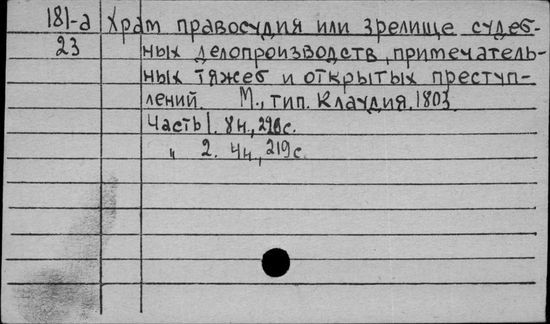 181-а Храм правосудия или зрелище судеб-
23 ных делопроизводств, примечатель-
ных тяжеб и открытых преступ-
лений. М., тип. Клаудия, 1803.
Часть 1. 8н., с.
" 2. 4н., 219с.